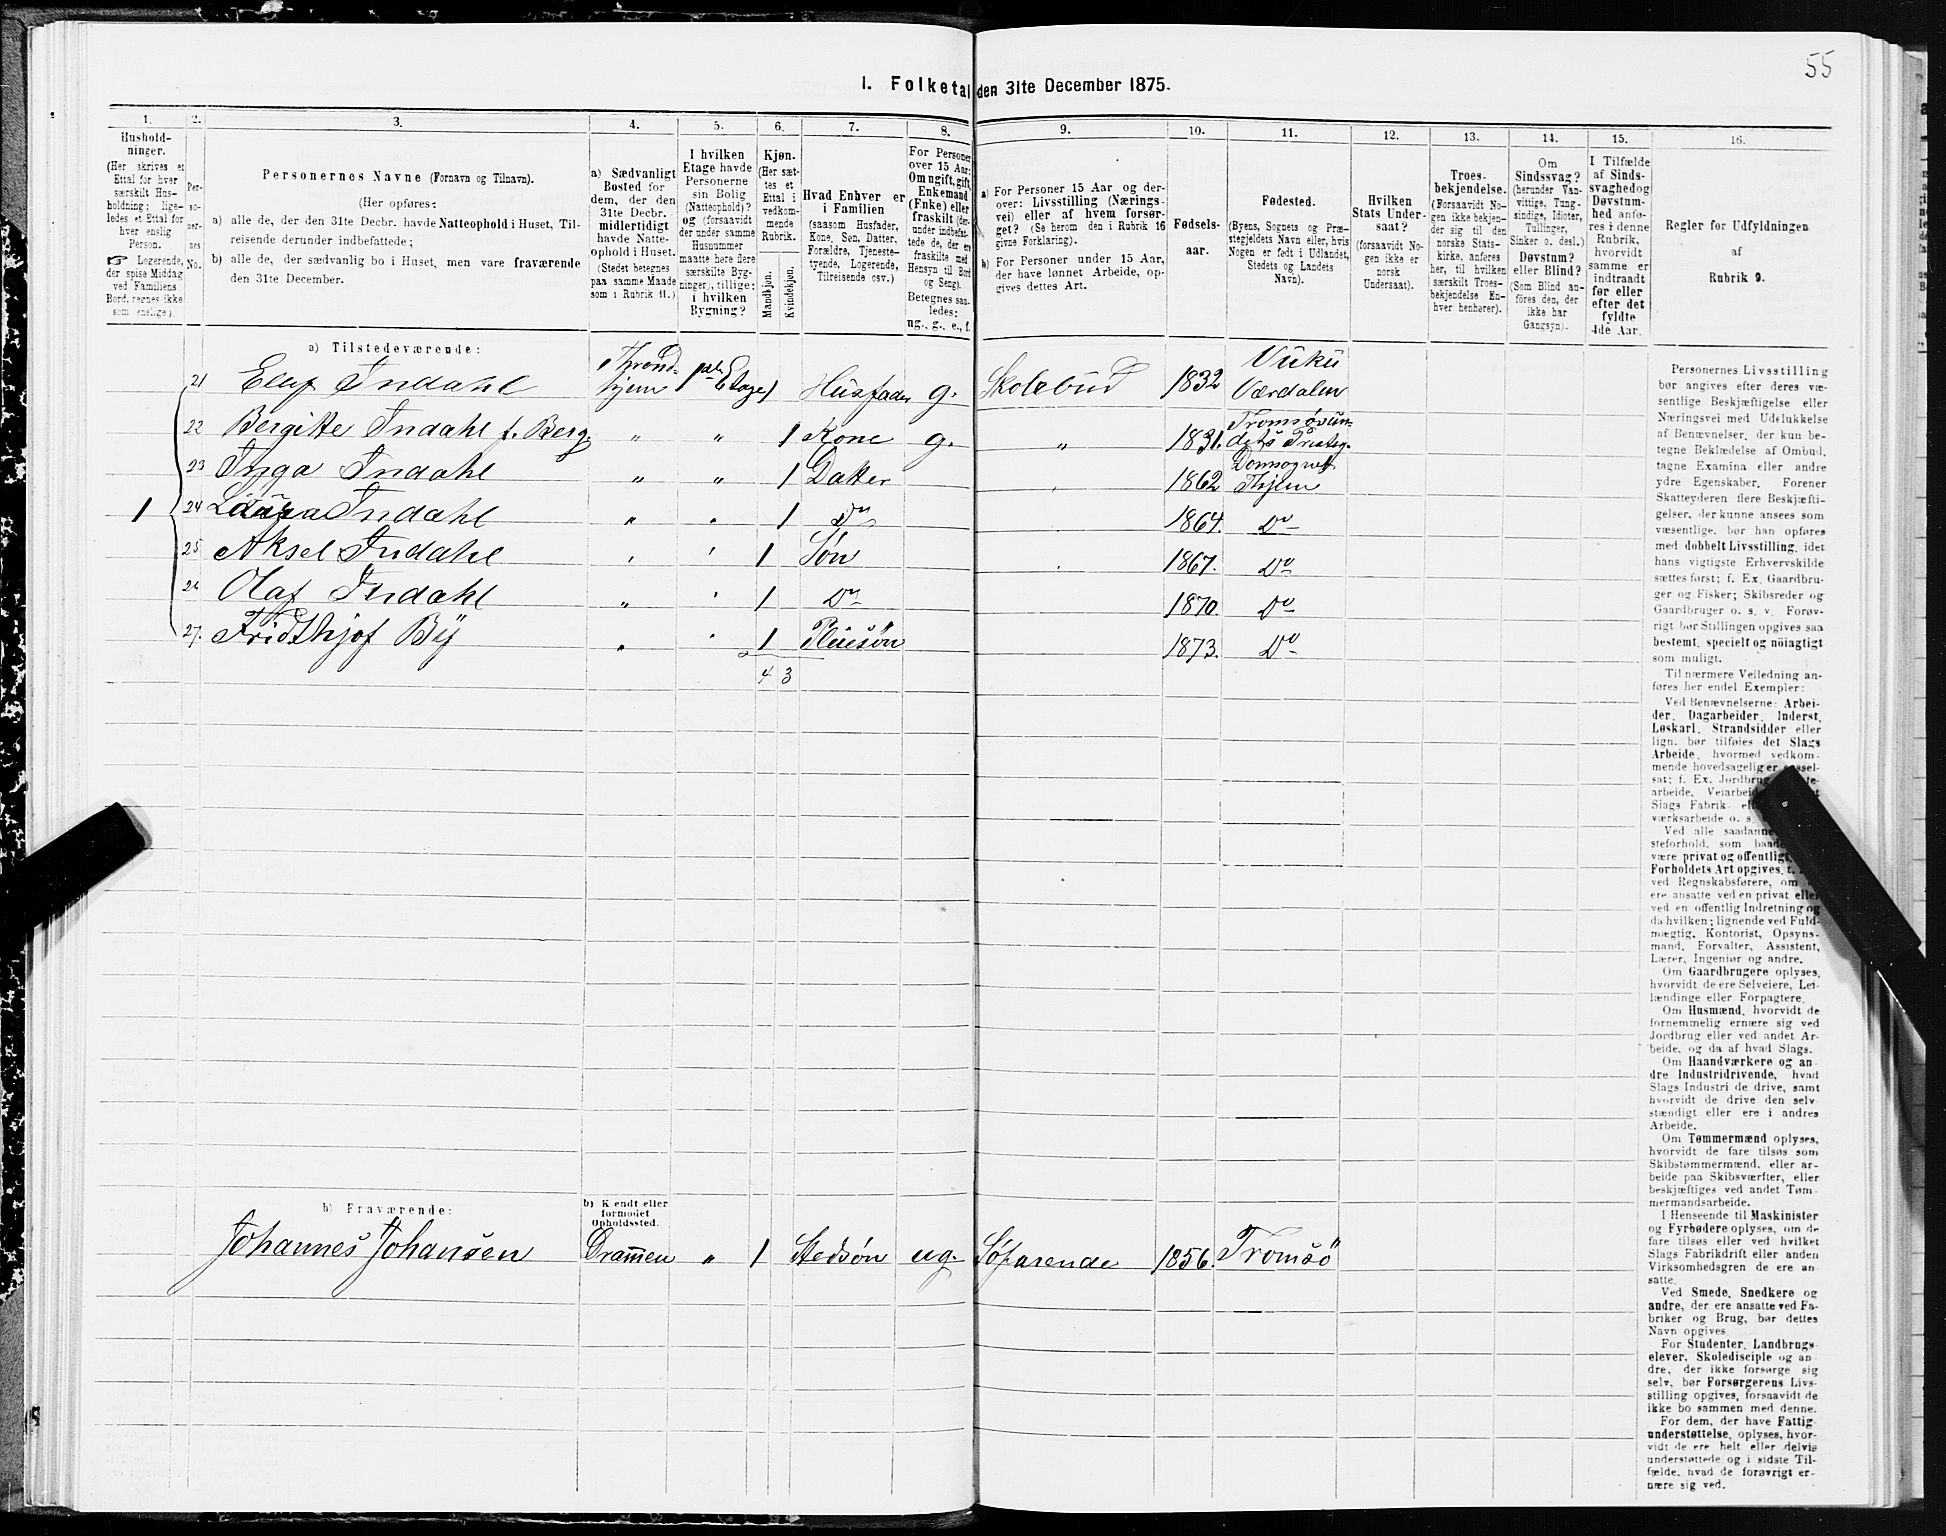 55
I. Folketal den 31te December 1875.
1.
2.
3.
4.
5.
6.
7.
8.
9.
10.
11.
12.
13.
14.
15.
16.
Hushold-
ninger.
(Her skrives et
Ettal for hver
særskilt Hus-
holdning; lige-
ledes et Ettal for
hver enslig
Person.
☞ Logerende,
der spise Middag
ved Familiens
Bord, regnes ikke
som enslige).
Per-
so-
ner-
nes
No.
Personernes Navne (Fornavn og Tilnavn).
(Her opføres:
a) alle de, der den 31te Decbr. havde Natteophold i Huset, Til-
reisende derunder indbefattede;
b) alle de, der sædvanlig bo i Huset, men vare fraværende
den 31te December.
a) Sædvanligt
Bosted for
dem, der den
31te Decbr.
midlertidigt
havde Natte-
ophold i Huset.
(Stedet betegnes
paa samme Maade
som i Rubrik 11.)
I hvilken
Etage havde
Personerne
sin Bolig
(Natteophold)?
og (forsaavidt
der under samme
Husnummer
maatte høre flere
særskilte Byg-
ninger), tillige:
i hvilken
Bygning?
Kjøn.
(Her sæt-
tes et
Ettal i
vedkom-
mende
Rubrik.
Mandkjøn.
Kvindekjøn.
Hvad Enhver er
i Familien
(saasom Husfader,
Kone, Søn, Datter,
Forældre, Tjeneste-
tyende, Logerende,
Tilreisende osv.)
For Personer
over 15 Aar:
Om ugift, gift,
Enkemand
(Enke) eller
fraskilt (der-
under indbefat-
tede de, der ere
fraskilte med
Hensyn til Bord
og Seng).
Betegnes saa-
ledes:
ug., g., e., f.
a) For Personer 15 Aar og der-
over: Livsstilling (Nærings-
vei) eller af hvem forsør-
get? (Se herom den i Rubrik 16
givne Forklaring).
b) For Personer under 15 Aar,
der have lønnet Arbeide, op-
gives dettes Art.
Fødsels-
aar.
Fødested.
(Byens, Sognets og Præ-
stegjeldets Navn eller, hvis
Nogen er født i Udlandet,
Stedets og Landets
Navn).
Hvilken
Stats Under-
saat?
(forsaavidt No-
gen ikke er
norsk
Undersaat).
Troes-
bekjendelse.
(Forsaavidt No-
gen ikke bekjen-
der sig til den
norske Stats-
kirke, anføres
her, til hvilken
særskilt Troes-
bekjendelse En-
hver henhører).
Om
Sindssvag?
(herunder Van-
vittige, Tung-
sindige, Idioter,
Tullinger,
Sinker o. desl.)
Døvstum?
eller Blind?
(Som Blind an-
føres den, der
ikke har
Gangsyn).
I Tilfælde
af Sinds-
svaghed og
Døvstum-
hed anfø-
res i denne
Rubrik,
hvorvidt
samme er
indtraadt
før eller
efter det
fyldte
4de Aar.
Regler for Udfyldningen
af
Rubrik 9.
a) Tilstedeværende:
21 Eluf Indahl Thrond-hjem 1ste Etage 1 Husfader g. Skolebud 1832 Vuku Værdalen
22 Bergitte Indahl f. Berg " " 1 Kone g. " 1831. Tromsøsundets Præsteg.
23 Inga Indahl " " 1 Datter 1862 Domsognet Thjem
1 24 Laura Indahl " " 1 Do 1864. Do
25 Aksel Indahl " " 1 Søn 1867. Do
26 Olaf Indahl " " 1 Do 1870. Do
27. Fridthjof By " " 1 Pleiesøn 1873. Do
4 3
b) Fraværende:
b) Kendt eller
formodet
Opholdssted.
Johannes Johansen Drammen " 1 Stedsøn ug. Søfarende 1856. Tromsö
Personernes Livsstilling
bør angives efter deres væ-
sentlige Beskjæftigelse eller
Næringsvei med Udelukkelse
af Benævnelser, der kun be-
tegne Beklædelse af Ombud,
tagne Examina eller andre
ydre Egenskaber. Forener
Skatteyderen flere Beskjæfti-
gelser, der kunne ansees som
væsentlige, bør han opføres
med dobbelt Livsstilling, idet
hans vigtigste Erhvervskilde
sættes først; f. Ex. Gaardbru-
ger og Fisker; Skibsreder og
Gaardbruger o. s. v. Forøv-
rigt bør Stillingen opgives saa
bestemt, specielt og nøiagtigt
som muligt.
Til nærmere Veiledning an-
føres her endel Exempler:
Ved Benævnelserne: Arbei-
der, Dagarbeider, Inderst,
Løskarl, Strandsidder eller
lign. bør tilføies det Slags
Arbeide, hvormed vedkom-
mende hovedsagelig er
sat; f. Ex. Jordbrug,
arbeide, Veiarbeide
Slags Fabrik-
værksarbeide o. s.
Ved alle saadanne
steforhold, som baade
være privat og offentligt,
Forholdets Art opgives, f.
ved Regnskabsførere, om
ere ansatte ved en privat eller
ved en offentlig Indretning og
da hvilken; lignende ved Fuld-
mægtig, Kontorist, Opsyns-
mand, Forvalter, Assistent,
Lærer, Ingeniør og andre.
Om Gaardbrugere oplyses,
hvorvidt de ere Selveiere, Lei-
lændinge eller Forpagtere.
Om Husmænd, hvorvidt de
fornemmelig ernære sig ved
Jordbrug eller ved andet Ar-
beide, og da af hvad Slags.
Om Haandværkere og an-
dre Industridrivende, hvad
Slags Industri de drive, samt
hvorvidt de drive den selv-
stændigt eller ere i andres
Arbeide.
Om Tømmermænd oplyses,
hvorvidt de fare tilsøs som
Skibstømmermænd, eller ar-
beide paa Skibsværfter, eller
beskjæftiges ved andet Tøm-
mermandsarbeide.
I Henseende til Maskinister
og Fyrbødere oplyses, om de
fare tilsøs eller ved hvilket
Slags Fabrikdrift eller anden
Virksomhedsgren de ere an-
satte.
Ved Smede, Snedkere og
andre, der ere ansatte ved Fa-
briker og Brug, bør dettes
Navn opgives
For Studenter, Landbrugs-
elever, Skoledisciple og an-
dre, der ikke forsørge sig
selv, bør Forsørgerens Livs-
stilling opgives, forsaavidt de
ikke bo sammen med denne.
For dem, der have Fattig-
understøttelse, oplyses, hvor-
vidt de ere helt eller delvis
understøttede og i sidste Til-
fælde, hvad de forøvrigt er-
nære sig ved.